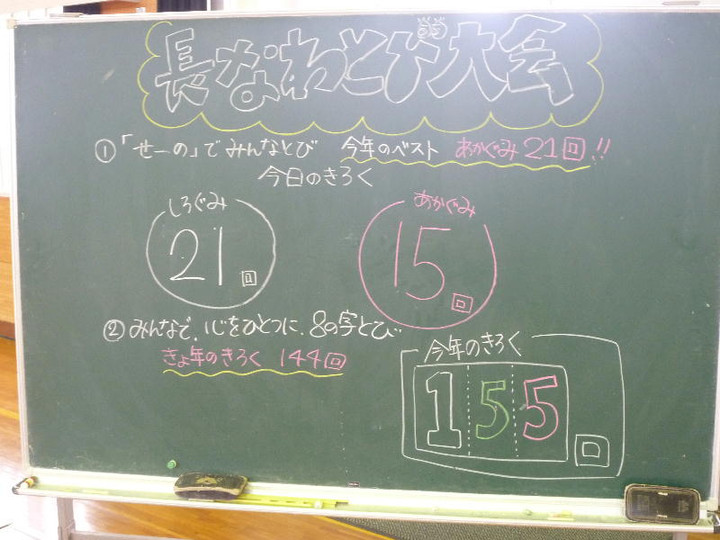 長なわとび大会
①「せーの」でみんなとび 今年のベスト あかぐみ21回!!
今日のきろく
しろぐみ
21回
あかぐみ
15回
②みんなで、心をひとつに、8の字とび
きょ年のきろく 144回
今年のきろく
155回